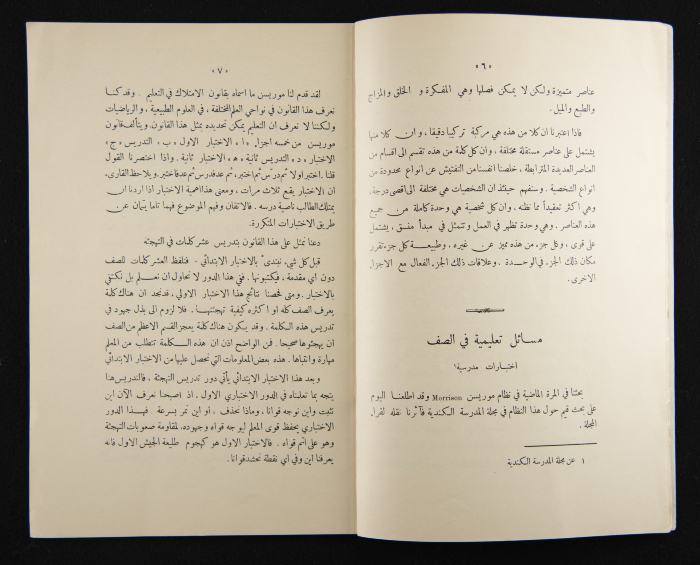 «٦»
عناصر متميزة ولكن لا يمكن فصلها وهي المفكرة و الخلق والمزاج
والطبع والميل.
فاذا اعتبرنا ان كلا من هذه هي مركبة تركيبا دقيقا، وان كلا منها
يشتمل على عناصر مستقلة مختلفة، وان كل كلمة من هذه تقسم الى اقسام من
العناصر العديدة المترابطة، خلصنا انفسنا من التفتيش عن انواع محدودة من
انواع الشخصية. وسنفهم حينئذ ان الشخصيات هي مختلفة الى اقصى درجة.
وهي اكثر تعقيداً مما نظنه، وان كل شخصية هي وحدة كاملة من جميع
هذه العناصر. وهي وحدة تظهر في العمل وتتمثل في مبدأ منسق، يشتمل
على قوى، وكل جزء من هذه مميز عن غيره، وطبيعة كل جزء تقرر
مكان ذلك الجزء في الوحدة. وعلاقات ذلك الجزء الفعال مع الاجزاء
الاخرى.
مسائل تعليمية في الصف
اختبارات مدرسية ١
بحثنا في المرة الماضية في نظام موريسن Morrison وقد اطلعنا اليوم
على بحث قيم حول هذا النظام في مجلة المدرسة الكندية فآثرنا نقله لقراء
المجلة.
١ عن مجلة المدرسة الكندية
«٧»
لقد قدم لنا موريسن ما اسماه بقانون الامتلاك في التعليم. وقد كنا
نعرف هذا القانون في نواحي العلم المختلفة، في العلوم الطبيعية، والرياضيات
ولكننا لا نعرف ان التعليم يمكن تحديده بمثل هذا القانون. ويتألف قانون
موريسن من خمسة اجزاء «ا» الاختبار الاول «ب» التدريس «ج»
الاختبار «د» التدريس ثانية «ه» الاختبار ثانية. واذا اختصرنا القول
قلنا. اختبر اولا ثم درّس ثم اختبر، ثم عد فدرس ثم عد فاختبر. ويلاحظ القارئ،
ان الاختبار يقع ثلاث مرات، ومعنى هذا اهمية الاختبار اذا اردنا ان
يمتلك الطالب ناصية درسه. فالاتقان وفهم الموضوع فهما تاما يتمان عن
طريق الاختبارات المتكررة.
دعنا نمثل على هذا القانون بتدريس عشر كلمات في التهجئة
قبل كل شيء، نبتدئ بالاختبار الابتدائي. فنلفظ العشر كلمات للصف
دون اي مقدمة، فيكتبونها. ففي هذا الدور لا نحاول ان نعلم بل نكتفي
بالاختبار. ومتى فحصنا نتائج هذا الاختبار الاولي، قد نجد ان هناك كلمة
يعرف الصف كله او اكثره كيفية تهجئتها. فلا لزوم الى بذل جهود في
تدريس هذه الكلمة. وقد يكون هناك كلمة يعجز القسم الاعظم من الصف
ان يهجئوها صحيحا. فمن الواضح اذن ان هذه الكلمة تتطلب من المعلم
مهارة وانتباها. هذه بعض المعلومات التي نحصل عليها من الاختبار الابتدائي
وبعد هذا الاختبار الابتدائي يأتي دور تدريس التهجئة، فالتدريس هنا
يتجه بما تعلمناه في الدور الاختباري الاول، اذ اصبحنا نعرف الآن اين
نثبت واين نوجه قوانا، وماذا نحذف، او اين نمر بسرعة. فهذا الدور
الاختباري يحفظ قوى المعلم ليوجه قواه وجهوده، لمقاومة صعوبات التهجئة
وهو على اتم قواه. فالاختبار الاول هو كهجوم طليعة الجيش الاول فانه
يعرفنا اين وفي اي نقطة نحشد قوانا.